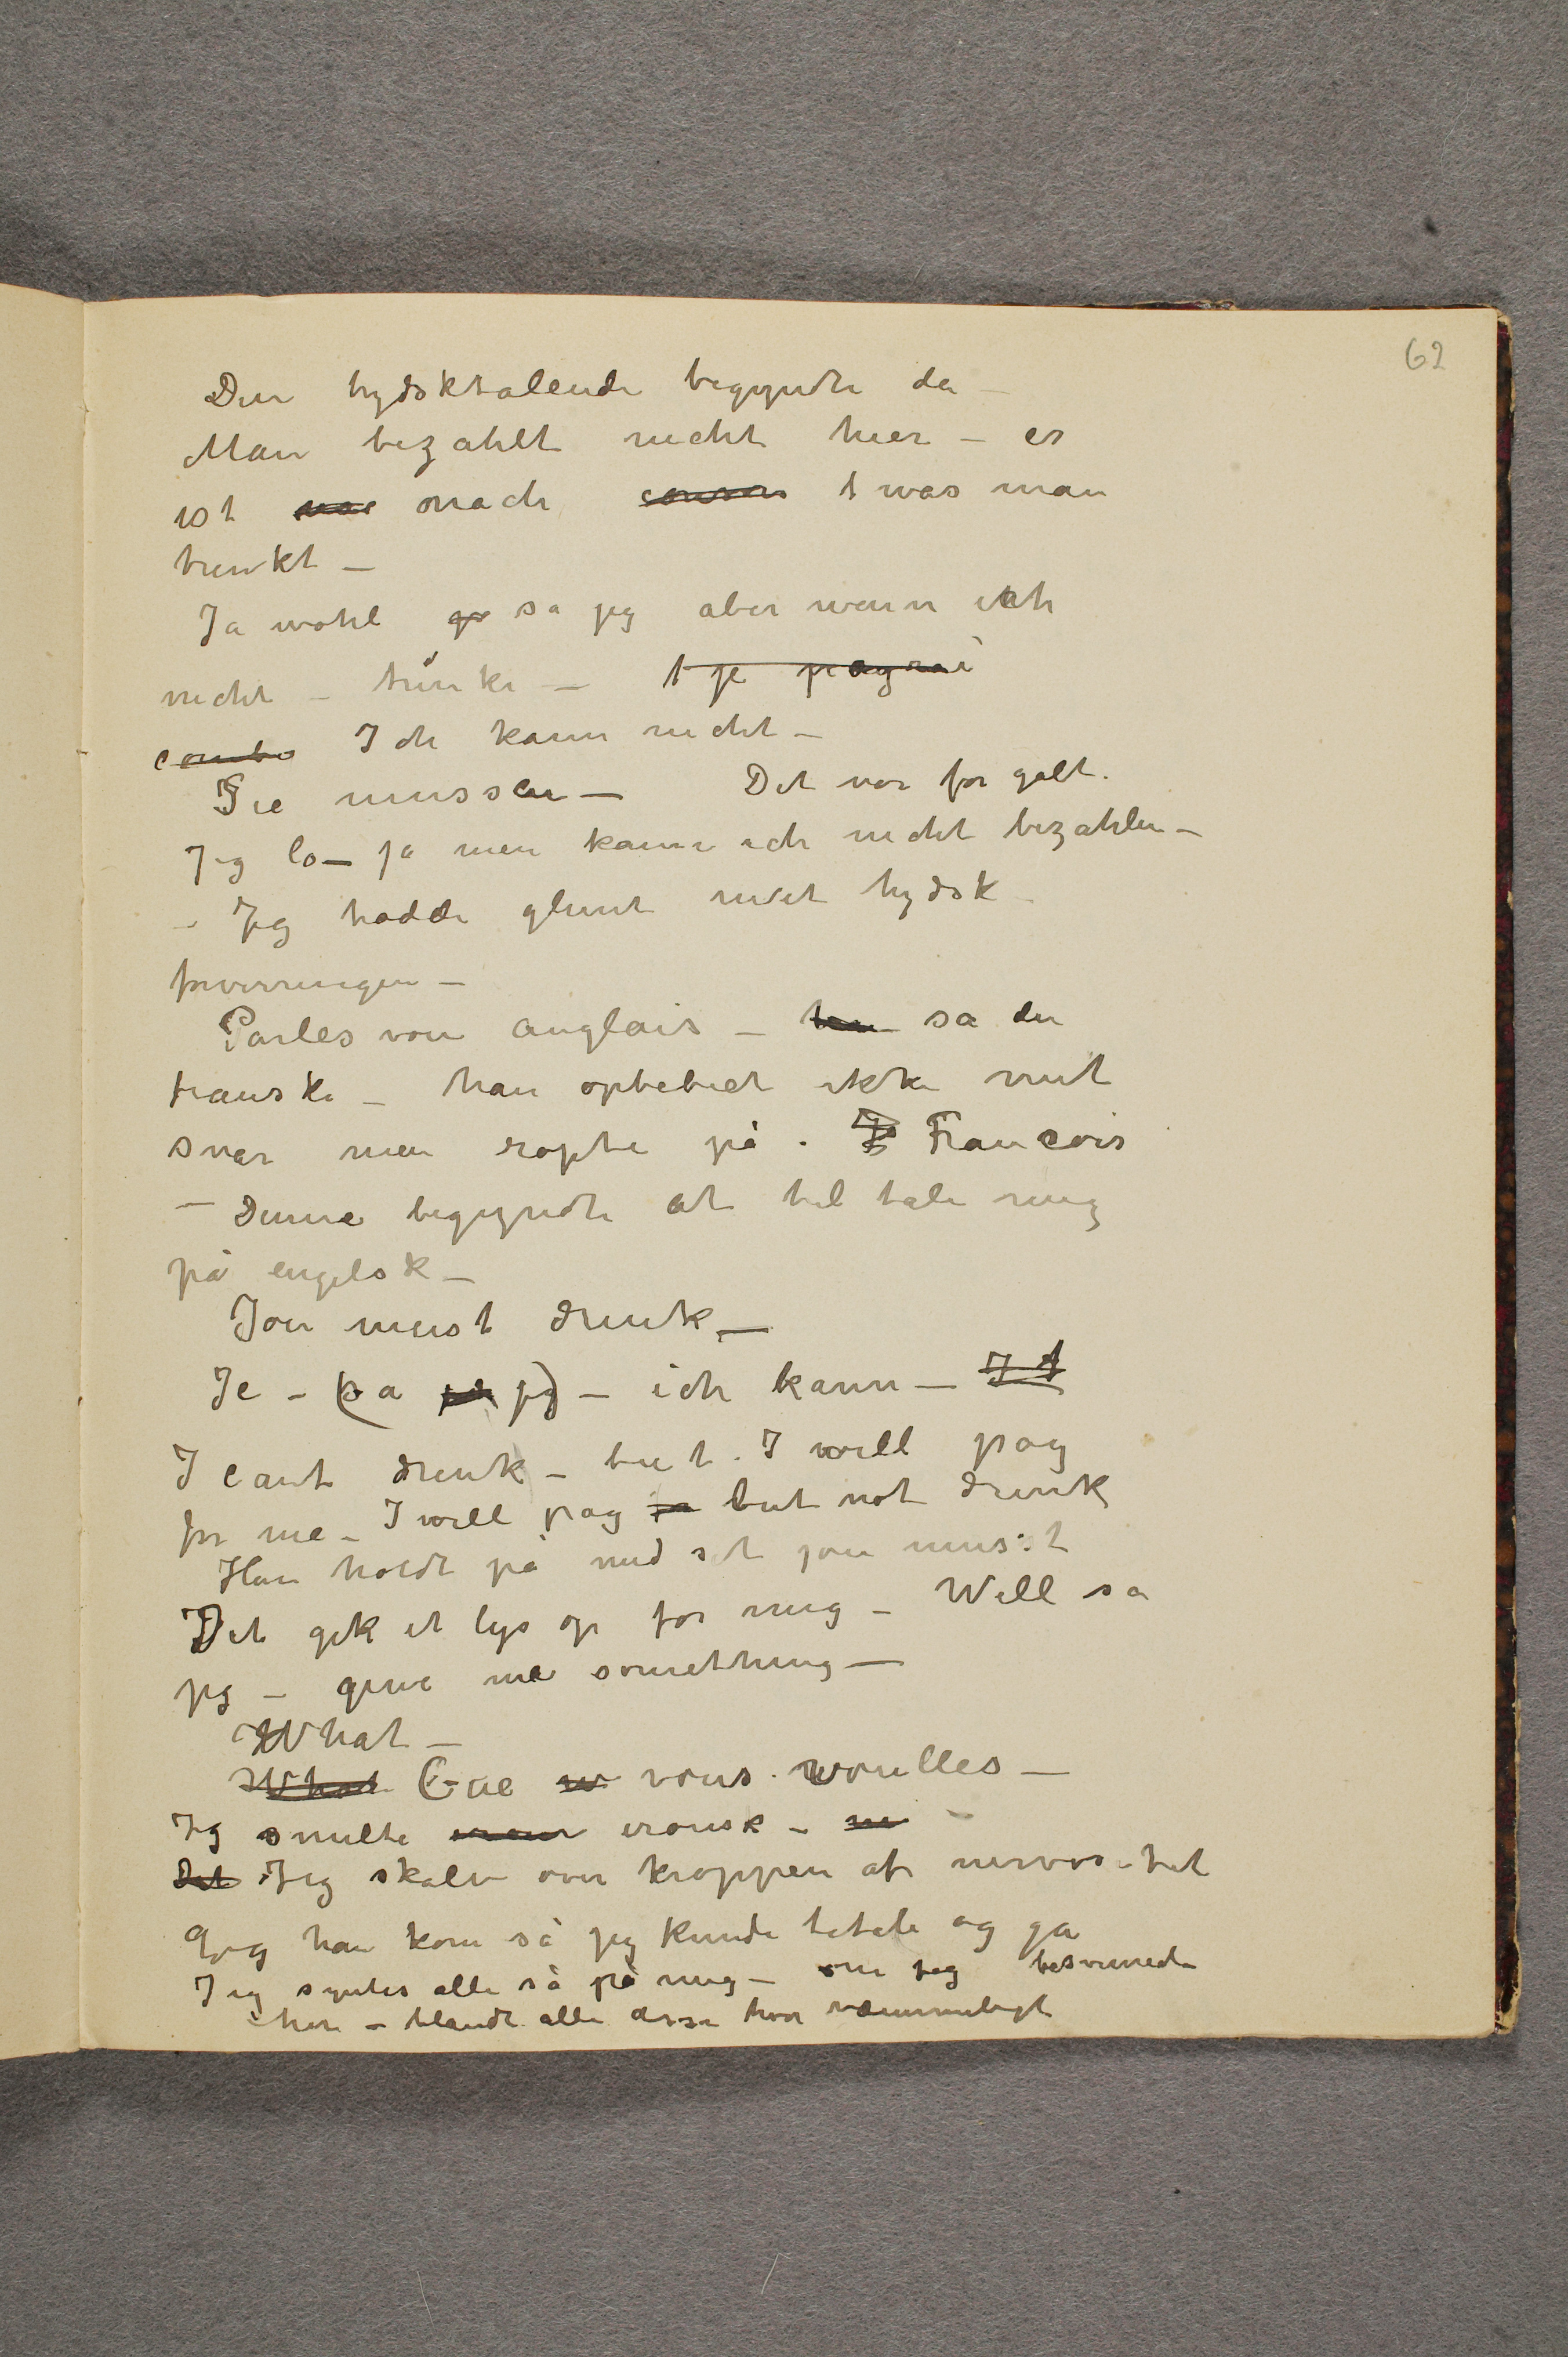 62
Den tydsktalende begyndte da –
Man bezahlt nicht hier – es
ist nach was man
trinkt –
Ja wohl sa jeg aber wenn ich
nicht – trinke – je payrai
Ich kann nicht –
Sie mussen – Det var for galt.
Jeg lo – ja men kann ich nicht bezahlen –
– Jeg hadde glemt mit tydsk
forvirringen –
Parles vou anglais – sa den
franske – han opbebiet ikke mit
svar men ropte på. Francois
– Denne begyndte at tiltale mig
på engelsk –
Jou must drink –
Je – (sa jeg) – ich kann –
I cant drink – but I will pay
for me – I will pay but not drink
Han holdt på med sit jou must
Det gik et lys op for mig – Well sa
jeg – give me something –
What –
What Que vous voulles –
Jeg smilte ironisk –
Det Jeg skalv over kroppen af nervositet
Gig han kom så jeg kunde betale og gå
Jeg syntes alle så på mig – om jeg besvimede
her – blandt alle disse hvor væmmeligt